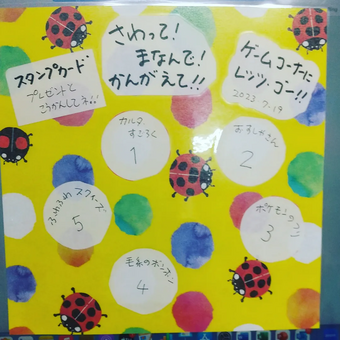 さわって!
まなんで!
かんがえて!!
スタンプカード
プレゼントと
こうかんしてネ!!
ゲームコーナーに
レッツ・ゴー!!
2023 7.19
カルタ
すごろく
1
2
ポケモンの
3
毛糸のボンボン
4
ふわふわスクイーズ
5